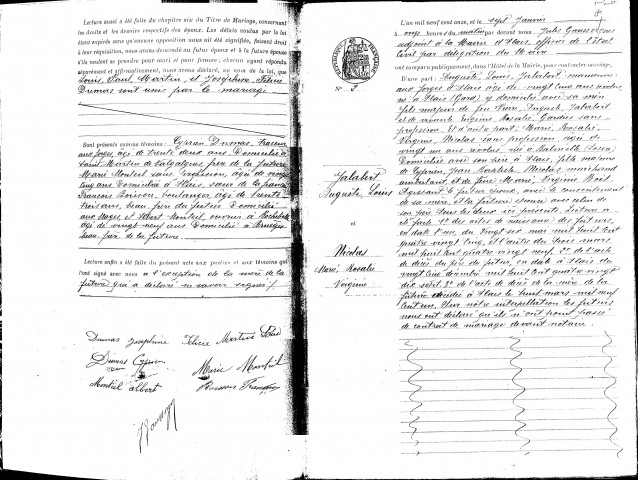 Lecture aussi a été faite du chapitre six du Titre du Mariage, concernant
les droits et les devoirs respectifs des époux. Les délais voulus par la loi
étant expirés sans qu'aucune opposition nous ait été signifiée, faisant droit
à leur réquisition, nous avons demandé au futur époux et à la future épouse
s'ils veulent se prendre pour mari et pour femme ; chacun ayant répondu
séparément et affirmativement, nous avons déclaré, au nom de la loi, que
Louis, Paul Martin, et Joséphine Félicie
Dumas sont unis par le mariage
Sont présents comme témoins : Cyprien Dumas,
aux forges, âgé de trente deux ans Domicilié à
Saint Martin de Valgalgues, frère de la future
Marie Monteil sans profession, âgée de vingt
cinq ans Domiciliée à Alais, sœur de la
François Boisson, boulanger, âgé de trente
trois ans, beau frère du futur Domicilié
aux Mages, et Albert Monteil, ouvrier à Rochebelle
âgé de vingt-neuf ans Domicilié à
beau frère de la future.
Lecture enfin a été faite du présent acte aux parties et aux témoins qui
l'ont signé avec nous à l'exception de la mère de la
future qui a déclaré ne savoir signer.
Dumas Joséphine Félicie Martin Paul
Dumas Cyprien Marie Monteil
Montiel albert Boisson François
L'an mil neuf cent onze, et le sept Janvier
à onze heures du matin par devant nous, Jules
adjoint à la Mairie d'Alais, officier de l'État
Civil par délégation du Maire
ont comparu publiquement, dans l'Hôtel de la Mairie, pour contracter mariage,
N° 2
D'une part : Auguste, Louis, Jalabert manœuvre
aux forges d'Alais âgé de vingt cinq ans révolus,
né à Alais (Gard) y domicilié avec sa mère
fils majeur de feu Jalabert
et de vivante Eugénie Rosalie, Gardès sans
profession Et d'autre part : Marie, Rosalie,
Virginie, Nicolas sans profession âgée de
vingt un ans révolus née à
Domiciliée avec son père à Alais, fille majeure
de Cyprien, Jean Baptiste, Nicolas marchand
ambulant, et de feue Marie, Virginie
Agissant le futur époux, avec le consentement
de sa mère, et la future épouse avec celui de
son père tous les deux ici présents. Lecture a
été faite 1° des actes de naissance des futurs,
en date l'un, du vingt six mai mil huit cent
quatre vingt cinq, et l'autre du trois mars
mil huit cent quatre vingt neuf. 2° de l'acte
de décès du père du futur, en date à Alais du
vingt cinq décembre mil huit cent quatre vingt
dix sept. 3° de l'acte de décès de la mère de la
future décédée à Alais le huit mars mil neuf
cent un. Sur notre interpellation les futurs
nous ont déclaré qu'ils n'ont point passé
de contrat de mariage devant notaire.
Jalabert
Auguste, Louis
et
Nicolas
Marie, Rosalie
Virginie